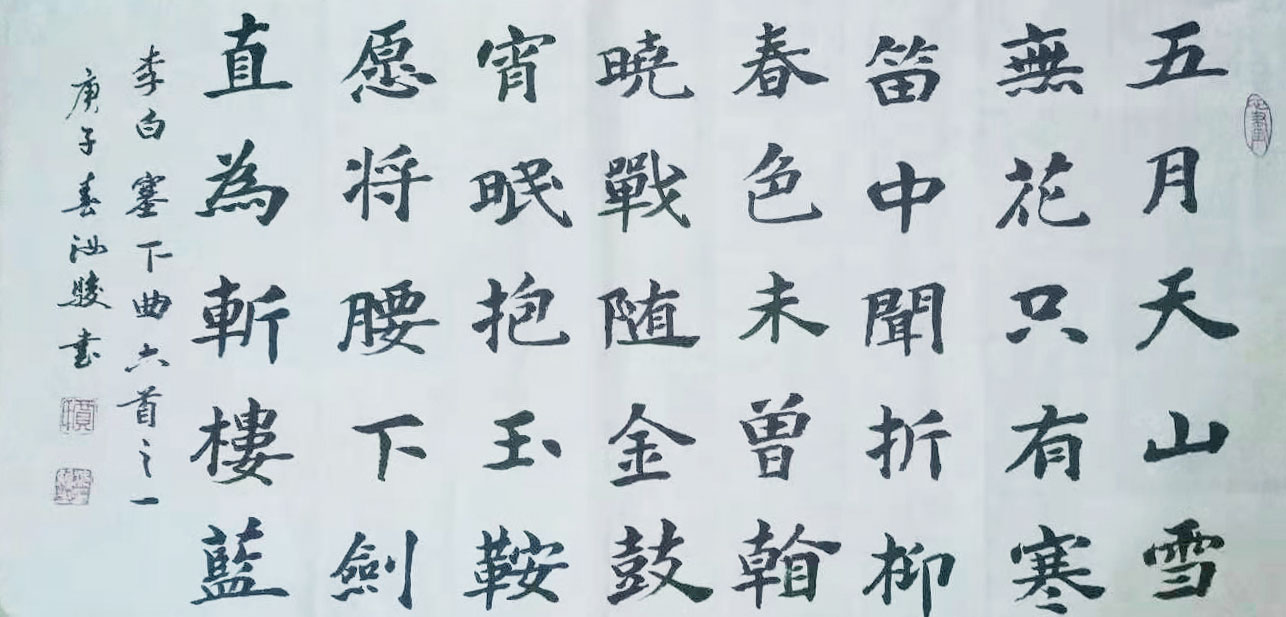 五月天山雪
無花只有寒
笛中聞折柳
春色未曾
曉戰随金鼓
宵眠抱玉鞍
愿将腰下劍
直為斬樓藍
李白塞下曲六首之一
庚子春駿书